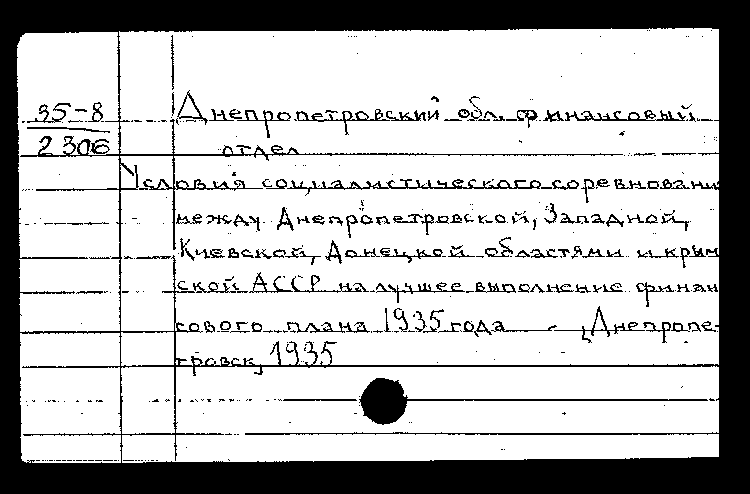 35-8
2306
Днепропетровский обл. финансовый
отдел
Условия социалистического соревновани
между Днепропетровской, Западной,
Киевской, Донецкой областями и крым
ской АССР на лучшее выполнение финан
сового плана 1935 года - [Днепропе-
тровск, 1935